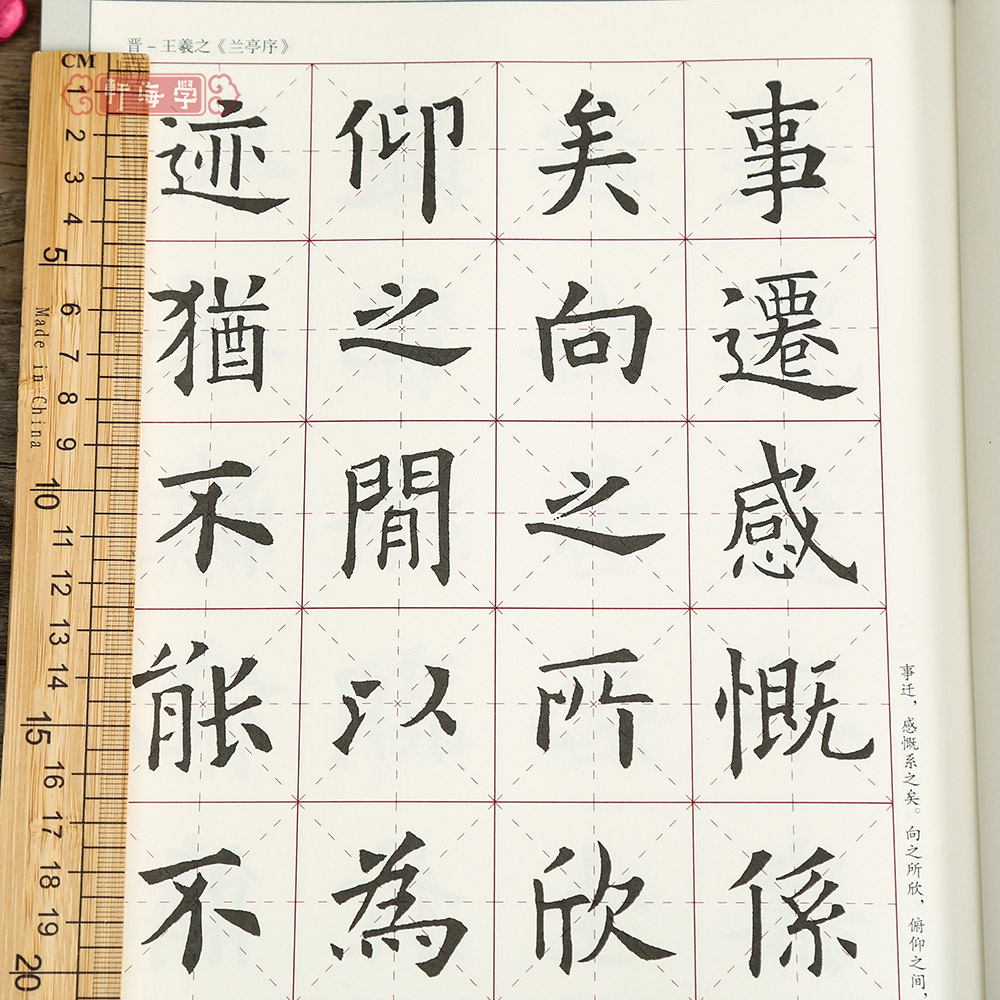 晋-王羲之《兰亭序》
轩海学
事遷感慨係
矣向之所欣
仰之間以為
迹猶不能不
事迁，感慨系之矣。向之所欣，俯仰之间，
CM
1
2
3
4
5
6
7
8
9
10
11
12
13
14
15
16
17
18
19
20
Made in China